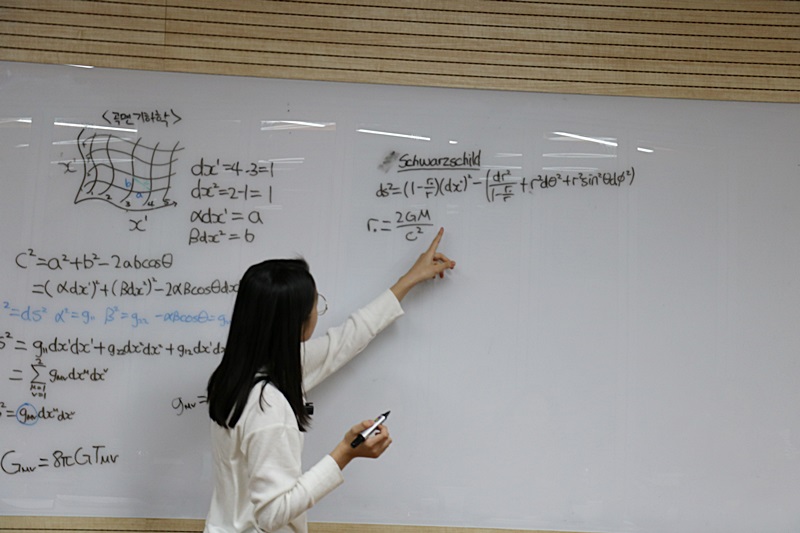 <곡면기하학>
x²
b
a
1 2 3 4 5
x¹
dx¹=4-3=1
dx²=2-1=1
αdx¹=a
βdx²=b
c²=a²+b²-2abcosθ
=(αdx¹)²+(βdx²)²-2αβcosθdx
²=ds² α²=g₁₁ β²=g₂₂ -αβcosθ=g
s²=g₁₁dx¹dx¹+g₂₂dx²dx²+g₁₂dx¹dx
=∑gμνdxᵘdxᵛ
μ=1
ν=1
²=gμνdxᵘdxᵛ
gμν=
Gμν=8πGTμν
Schwarzschild
ds²=(1-r./r)(dx⁰)²-(dr²/1-r./r+r²dθ²+r²sin²θdφ²)
r.=2GM/c²